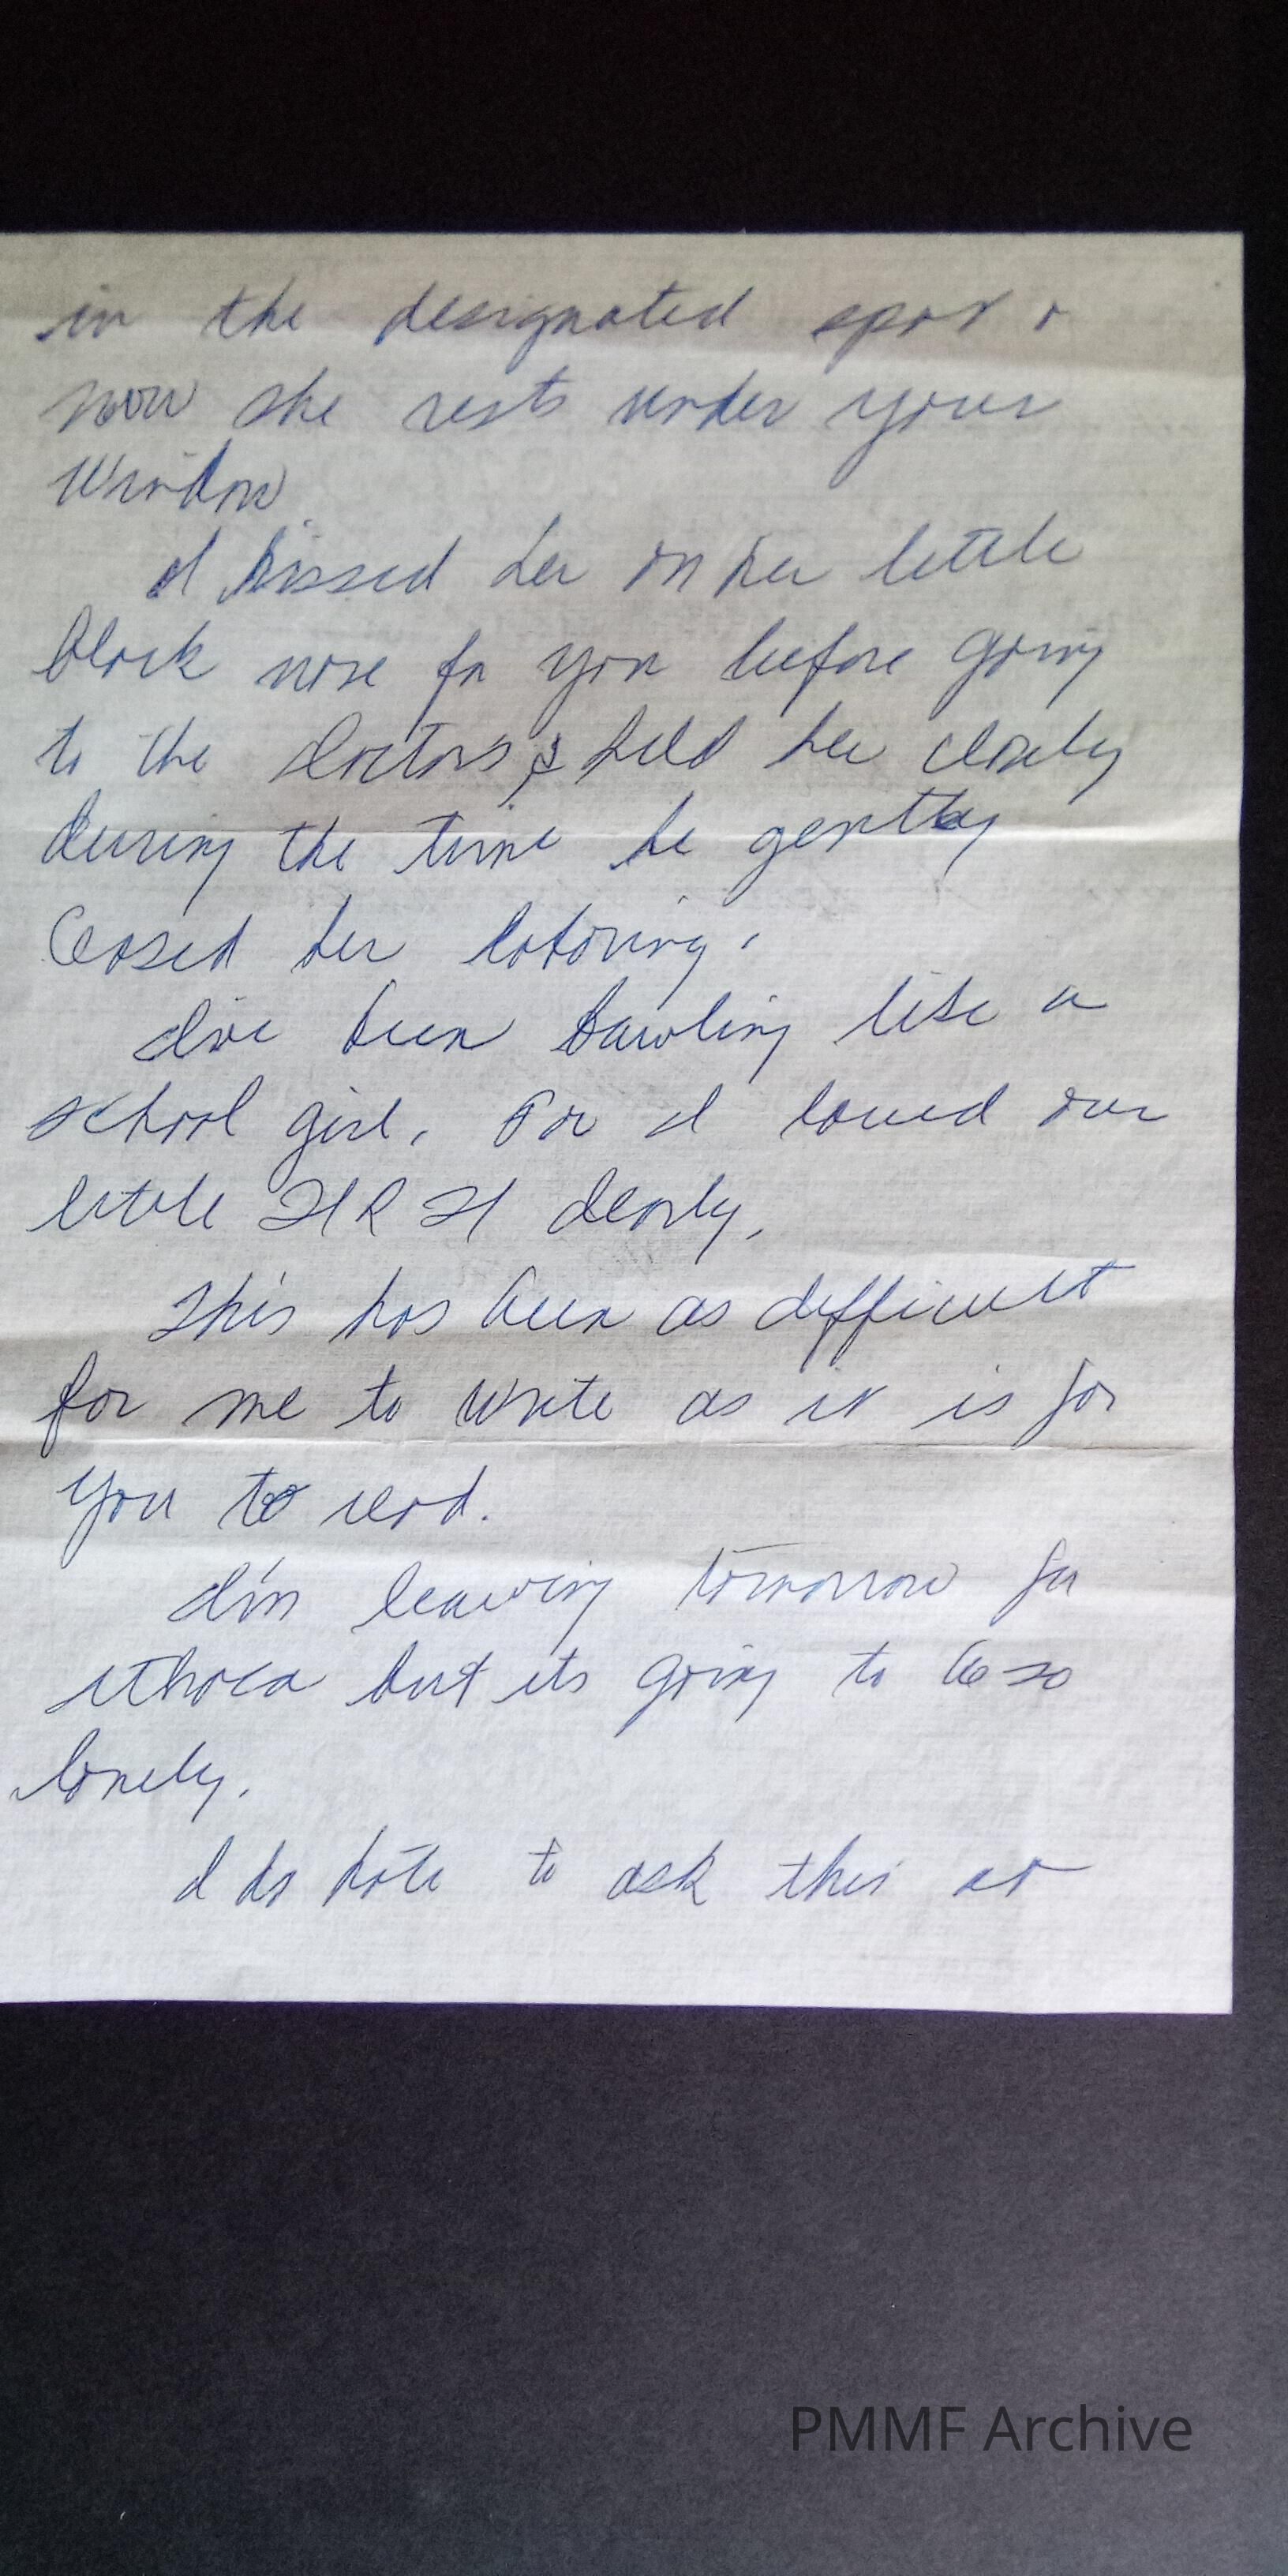 in the designated spot &
now she rests under your
window
I kissed her on her little
black nose for you before going
to the doctors & held her closely
during the time he gently
Ceased her laboring.
I've been bawling like a
school girl. For I loved our
little HRH dearly.
This has been as difficult
for me to write as it is for
you to read.
I'm leaving tomorrow for
ithaca but its going to be so
lonely.
I do hate to ask this at
PMMF Archive